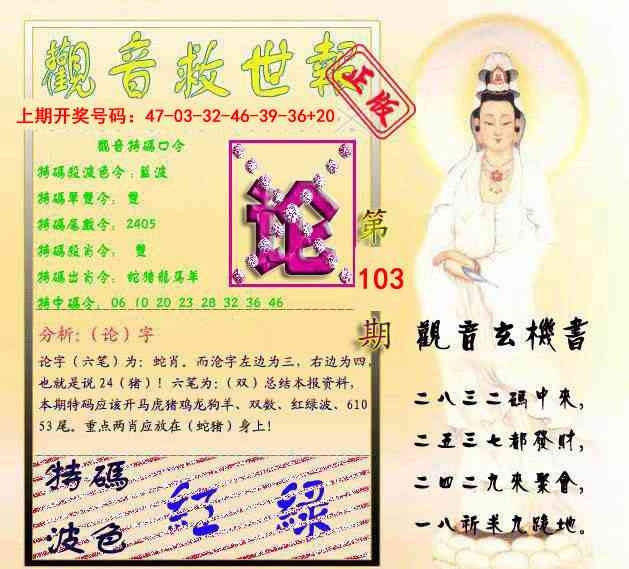 觀音救世報
正版
上期开奖号码：47-03-32-46-39-36+20
觀音特碼口令
特碼殺波色令：藍波
特碼單雙令： 雙
特碼尾數令： 2405
特碼殺肖令： 雙
特碼出肖令： 蛇猪龍馬羊
特中碼令： 06 10 20 23 28 32 36 46
论
第
103
期
分析:（论）字
论字（六笔）为：蛇肖。而沦字左边为三，右边为四，
也就是说24（猪）！六笔为：（双）总结本报资料，
本期特码应该开马虎猪鸡龙狗羊、双数、红绿波、610
53尾。重点两肖应放在（蛇猪）身上！
特碼
波色
紅 綠
觀音玄機書
二八三二碼中來，
二五三七都發財，
二四二九來聚會，
一八祈求九跪地。